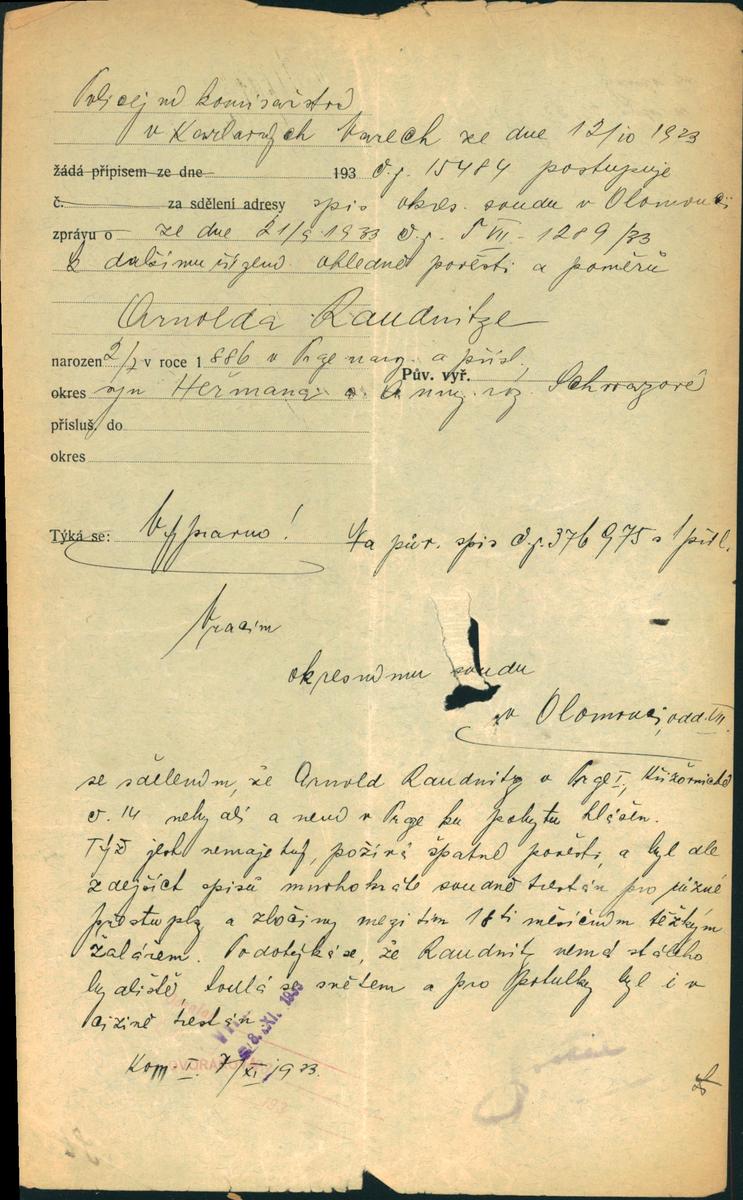 Policejní komisařství
v Karlových Varech ze dne 12/10 1933
žádá přípisem ze dne 193 č.j. 15484 postupuje
č. za sdělení adresy spis okres. soudu v Olomouci
zprávu o ze dne 21/9 1933 č.j. VII - 1289/33
k dalšímu řízení ohledně pověsti a poměrů
Arnolda Raudnitze
narozen 2/ v roce 1886 v Praze a přísl.
Pův. vyř.
okres syn Heřmana a Anny roz. Schwarzové
přísluš. do
okres
Týká se: Vypsáno! Na pův. spis č.j. 376975 s 1 příl.
Vracím
okresnímu soudu
v Olomouci, odd. VII.
se sdělením, že Arnold Raudnitz v Praze I, Křižovnická
č. 14 nebydlí a není v Praze ku pobytu hlášen.
Týž jest nemajetný, požívá špatné pověsti, a byl dle
zdejších spisů mnohokráte soudně trestán pro různé
přestupky a zločiny mezi tím 18ti měsíčním těžkým
žalářem. Podotýká se, že Raudnitz nemá stálého
bydliště toulá se světem a pro potulky byl i v
cizině trestán
8. XI. 1933
Kom I. 7/XI 1933.